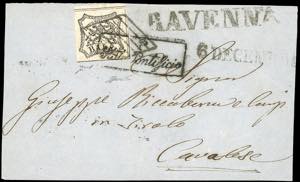 RAVENNA
6 DECEMBRE
Pontificio
Signor
Giuseppe Riccabona e Comp
in Tirolo
Cavalese